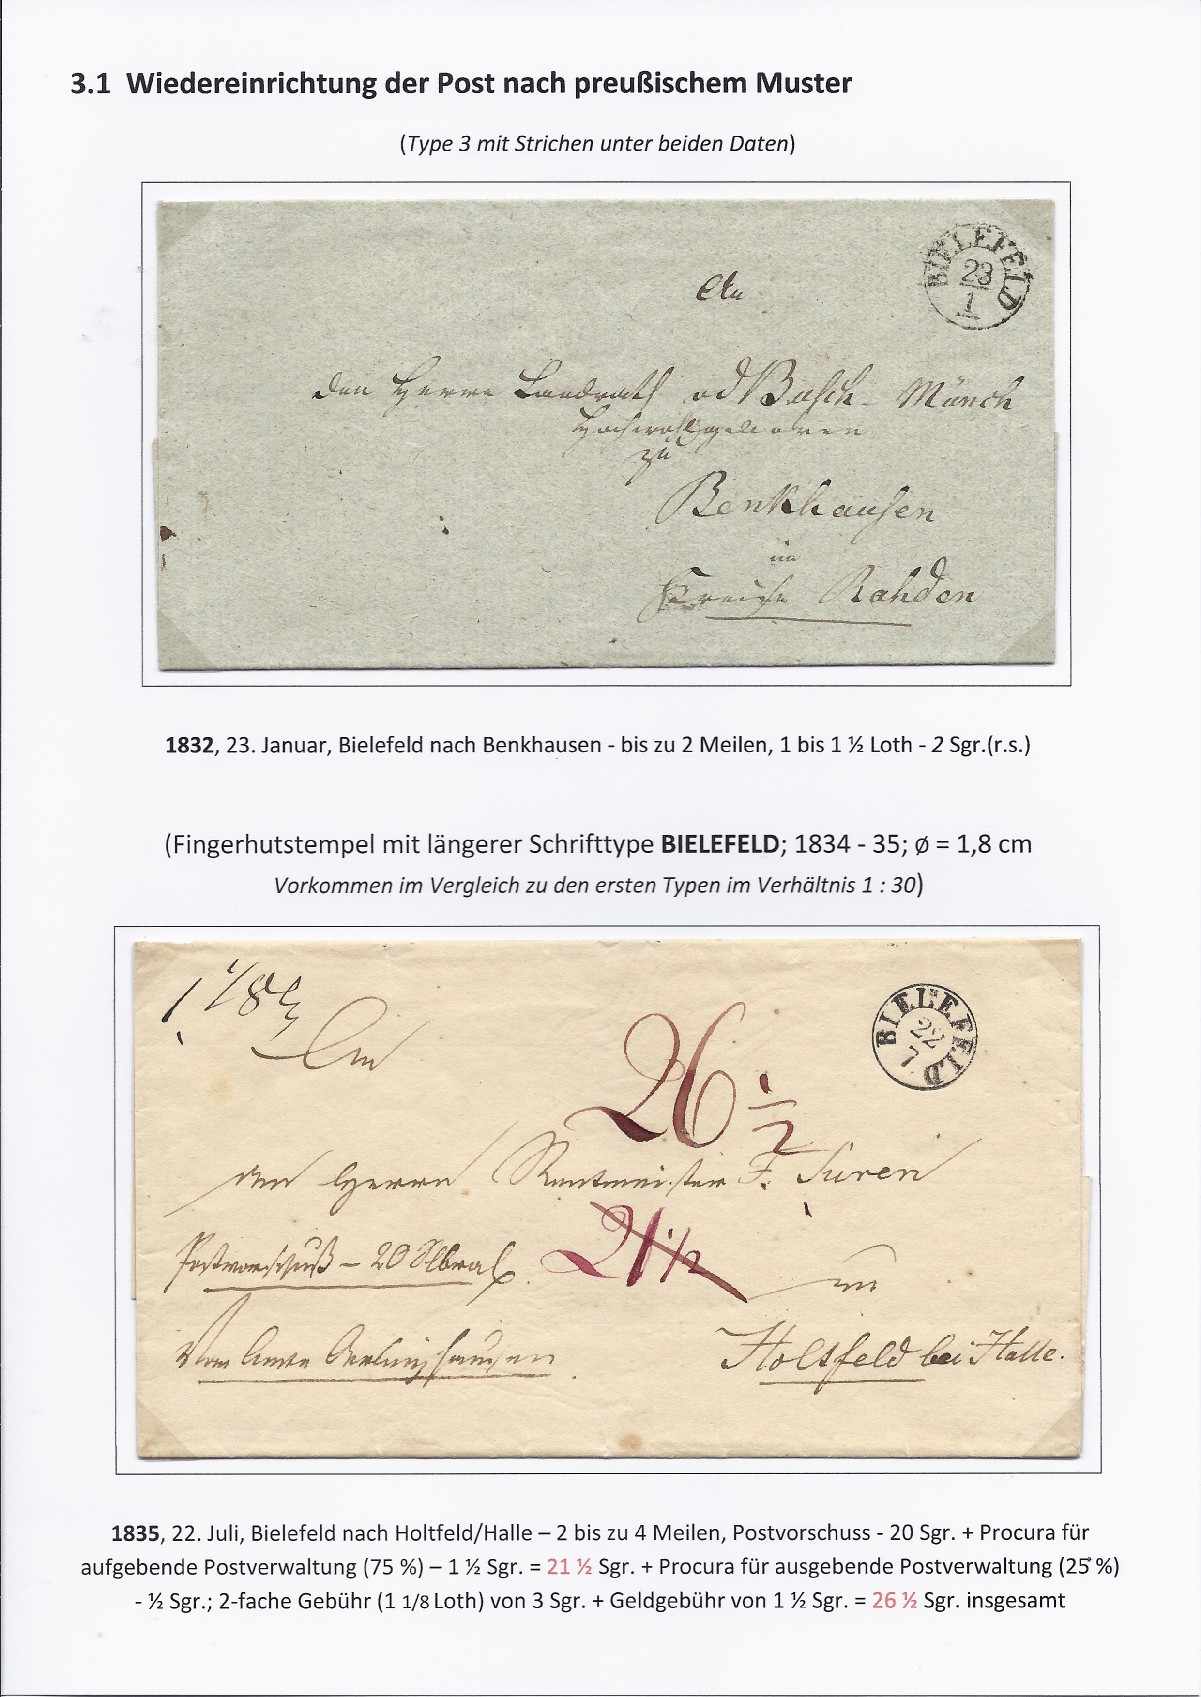 3.1 Wiedereinrichtung der Post nach preußischem Muster
(Type 3 mit Strichen unter beiden Daten)
BIELEFELD
23
1
An
den Herrn Landrath Busch-Münch
Hochwohlgeboren
zu
Benkhausen
im
Kreise Rahden
1832, 23. Januar, Bielefeld nach Benkhausen - bis zu 2 Meilen, 1 bis 1 ½ Loth - 2 Sgr.(r.s.)
(Fingerhutstempel mit längerer Schrifttype BIELEFELD; 1834 - 35; ø = 1,8 cm
Vorkommen im Vergleich zu den ersten Typen im Verhältnis 1 : 30)
1 1/8
BIELEFELD
22
7
An
26 ½
den Herrn Rentmeister F. Suren
21 ½
Postvorschuß – 20 Slbrgl.
zu
Vom Amte Oerlinghausen
Holtfeld bei Halle.
1835, 22. Juli, Bielefeld nach Holtfeld/Halle – 2 bis zu 4 Meilen, Postvorschuss - 20 Sgr. + Procura für
aufgebende Postverwaltung (75 %) – 1 ½ Sgr. = 21 ½ Sgr. + Procura für ausgebende Postverwaltung (25 %)
- ½ Sgr.; 2-fache Gebühr (1 1/8 Loth) von 3 Sgr. + Geldgebühr von 1 ½ Sgr. = 26 ½ Sgr. insgesamt